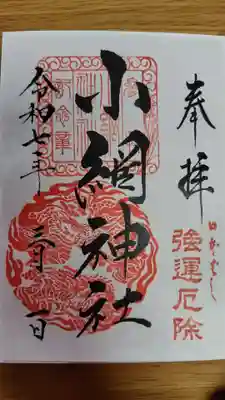 奉拝
強運厄除
小網神社
令和七年
三月一日